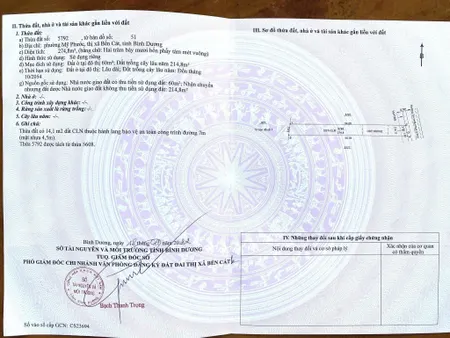 II. Thửa đất, nhà ở và tài sản khác gắn liền với đất
1. Thửa đất:
a) Thửa đất số: 5792 , tờ bản đồ số: 51
b) Địa chỉ: phường Mỹ Phước, thị xã Bến Cát, tỉnh Bình Dương
c) Diện tích: 274,8m², (bằng chữ: Hai trăm bảy mươi bốn phẩy tám mét vuông)
d) Hình thức sử dụng: Sử dụng riêng
đ) Mục đích sử dụng: Đất ở tại đô thị 60m²; Đất trồng cây lâu năm 214,8m²
e) Thời hạn sử dụng: Đất ở tại đô thị: Lâu dài; Đất trồng cây lâu năm: Đến tháng
10/2054
g) Nguồn gốc sử dụng: Nhà nước giao đất có thu tiền sử dụng đất: 60m²; Nhận chuyển
nhượng đất được Nhà nước giao đất không thu tiền sử dụng đất: 214,8m²
2. Nhà ở: -/-.
3. Công trình xây dựng khác: -/-.
4. Rừng sản xuất là rừng trồng: -/-.
5. Cây lâu năm: -/-.
6. Ghi chú:
Thửa đất có 14,1 m2 đất CLN thuộc hành lang bảo vệ an toàn công trình đường 7m
(mặt nhựa 4,5m)
Thửa 5792 được tách từ thửa 3608.
Bình Dương, ngày
SỞ TÀI NGUYÊN VÀ MÔI TRƯỜNG TỈNH BÌNH DƯƠNG
TUQ. GIÁM ĐỐC SỞ
PHÓ GIÁM ĐỐC CHI NHÁNH VĂN PHÒNG ĐĂNG KÝ ĐẤT ĐAI THỊ XÃ BẾN CÁT
Bạch Thanh Trung
Số vào sổ cấp GCN: CS22694
III. Sơ đồ thửa đất, nhà ở và tài sản khác gắn liền với đất
IV. Những thay đổi sau khi cấp giấy chứng nhận
Nội dung thay đổi và cơ sở pháp lý
Xác nhận của cơ quan
có thẩm quyền